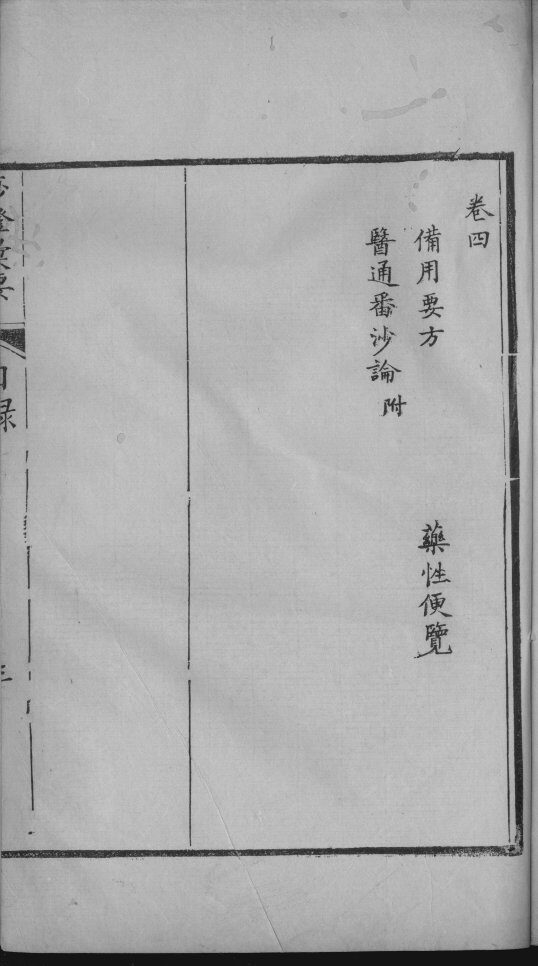 卷四
備用要方　藥性便覽
醫通番沙論附
目録